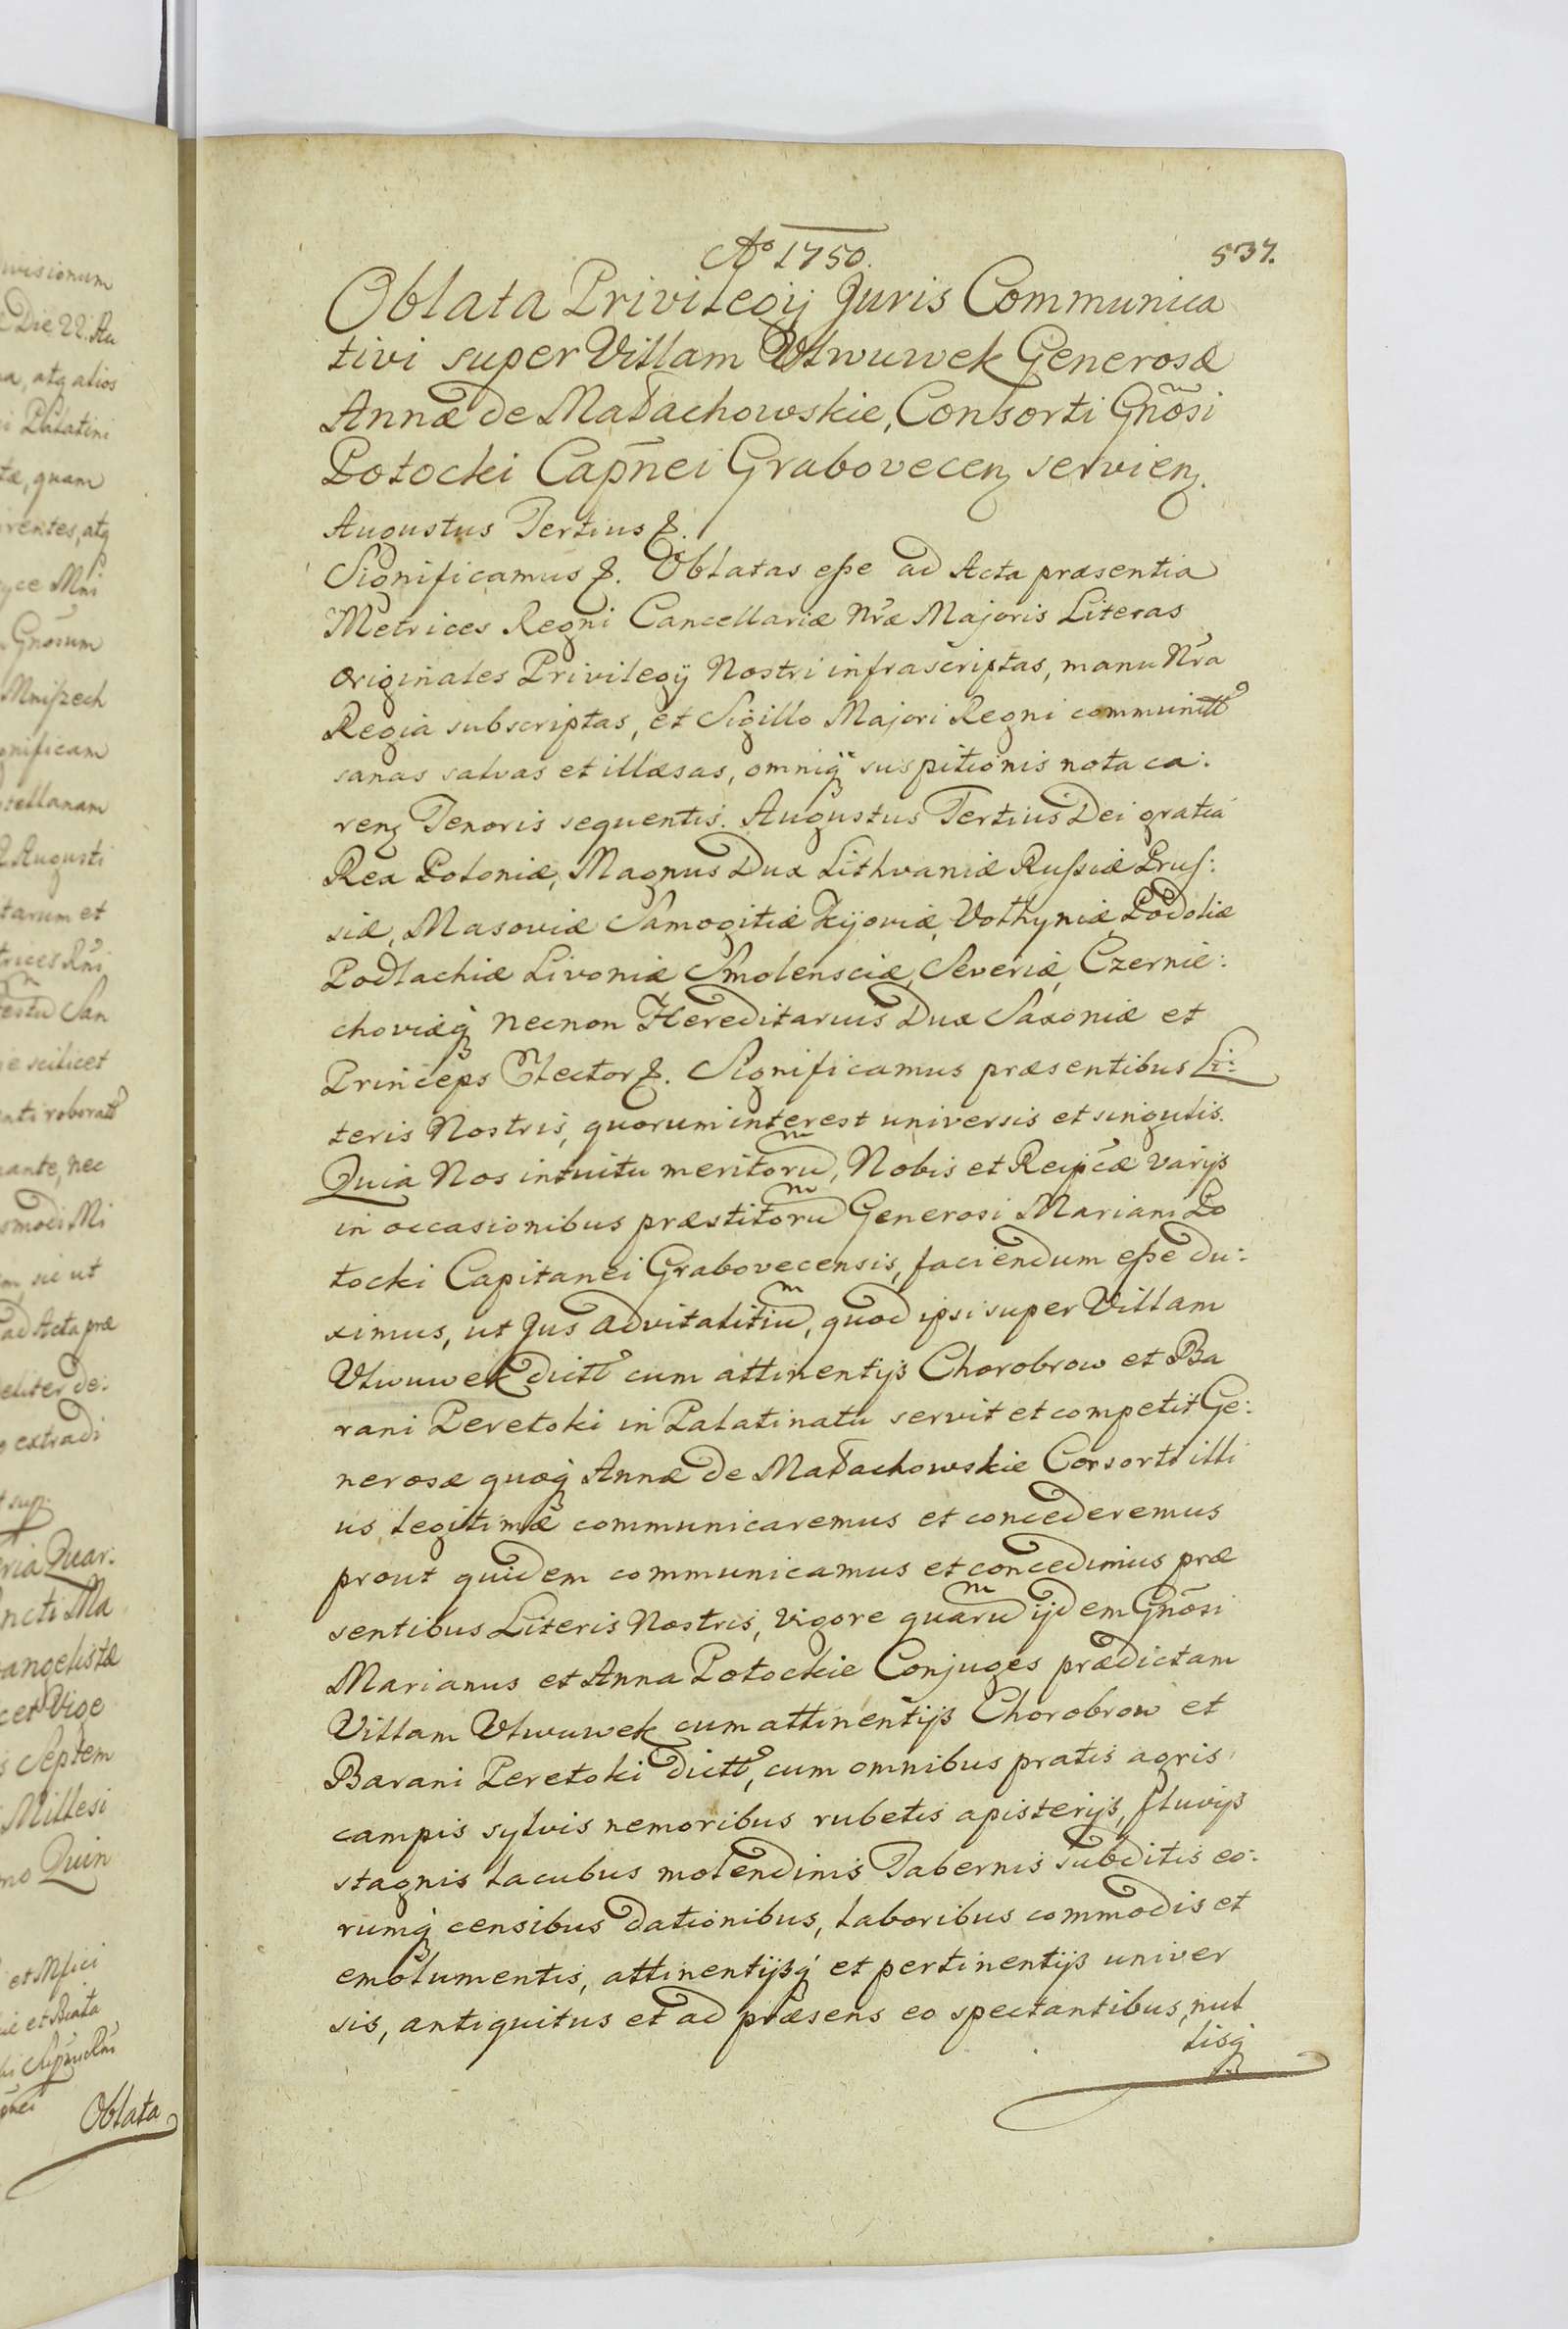 Aº 1750.
537.
Oblata Privilegij Juris Communica
tivi super Villam Ulwuwek Generosæ
Annæ de Małachowskie, Consorti Gñosi
Potocki Capñei Grabovecenʒ servienʒ.
Augustus Tertius &.
Significamus &. Oblatas eße ad Acta præsentia
Metrices Regni Cancellariæ Nr̃æ Majoris Literas
Originales Privilegÿ Nostri infrascriptas, manu Nr̃a
Regia subscriptas, et Sigillo Majori Regni communitt̃
sanas salvas et illæsas, omniq̃ suspitionis nota ca:
renʒ Tenoris sequentis. Augustus Tertius Dei gratiá
Rex Poloniæ, Magnus Dux Lithvaniæ Rußiæ Pruſ:
siæ, Masoviæ Samogitiæ Kijoviæ, Volhyniæ Podoliæ
Podlachiæ Livoniæ Smolensciæ, Severiæ, Czernie:
choviæq̃ necnon Hereditarius Dux Saxoniæ et
Princeps Elector &. Significamus præsentibus Li:
teris Nostris, quorum interest universis et singulis.
Quia Nos intuitu meritoruᵐ, Nobis et Reipc̃æ varijs
in occasionibus præstitoruᵐ Generosi Mariani Po
tocki Capitanei Grabovecensis, faciendum eße du:
ximus, ut Jus advitalitiuᵐ, quod ipsi super Villam
Ulwuwek dictt̃ cum attinentijs Chorobrow et Ba
rani Peretoki in Palatinatu servit et competit Ge:
nerosæ quoq̃ Annæ de Małachowskie Consorti illi
us legitimæ communicaremus et concederemus
prout quidem communicamus et concedimus præ
sentibus Literis Nostris, vigore quaruᵐ ijdem Gñosi
Marianus et Anna Potockie Conjuges prædictam
Villam Ulwuwek cum attinentijs Chorobrow et
Barani Peretoki dictt̃, cum omnibus pratis agris
campis sylvis nemoribus rubetis apisterijs, fluvijs
stagnis lacubus molendinis Tabernis subditis eo:
rumq̃ censibus dationibus, laboribus commodis et
emolumentis, attinentijsq̃ et pertinentijs univer
sis, antiquitus et ad præsens eo spectantibus, nul
lisq̃
Oblata